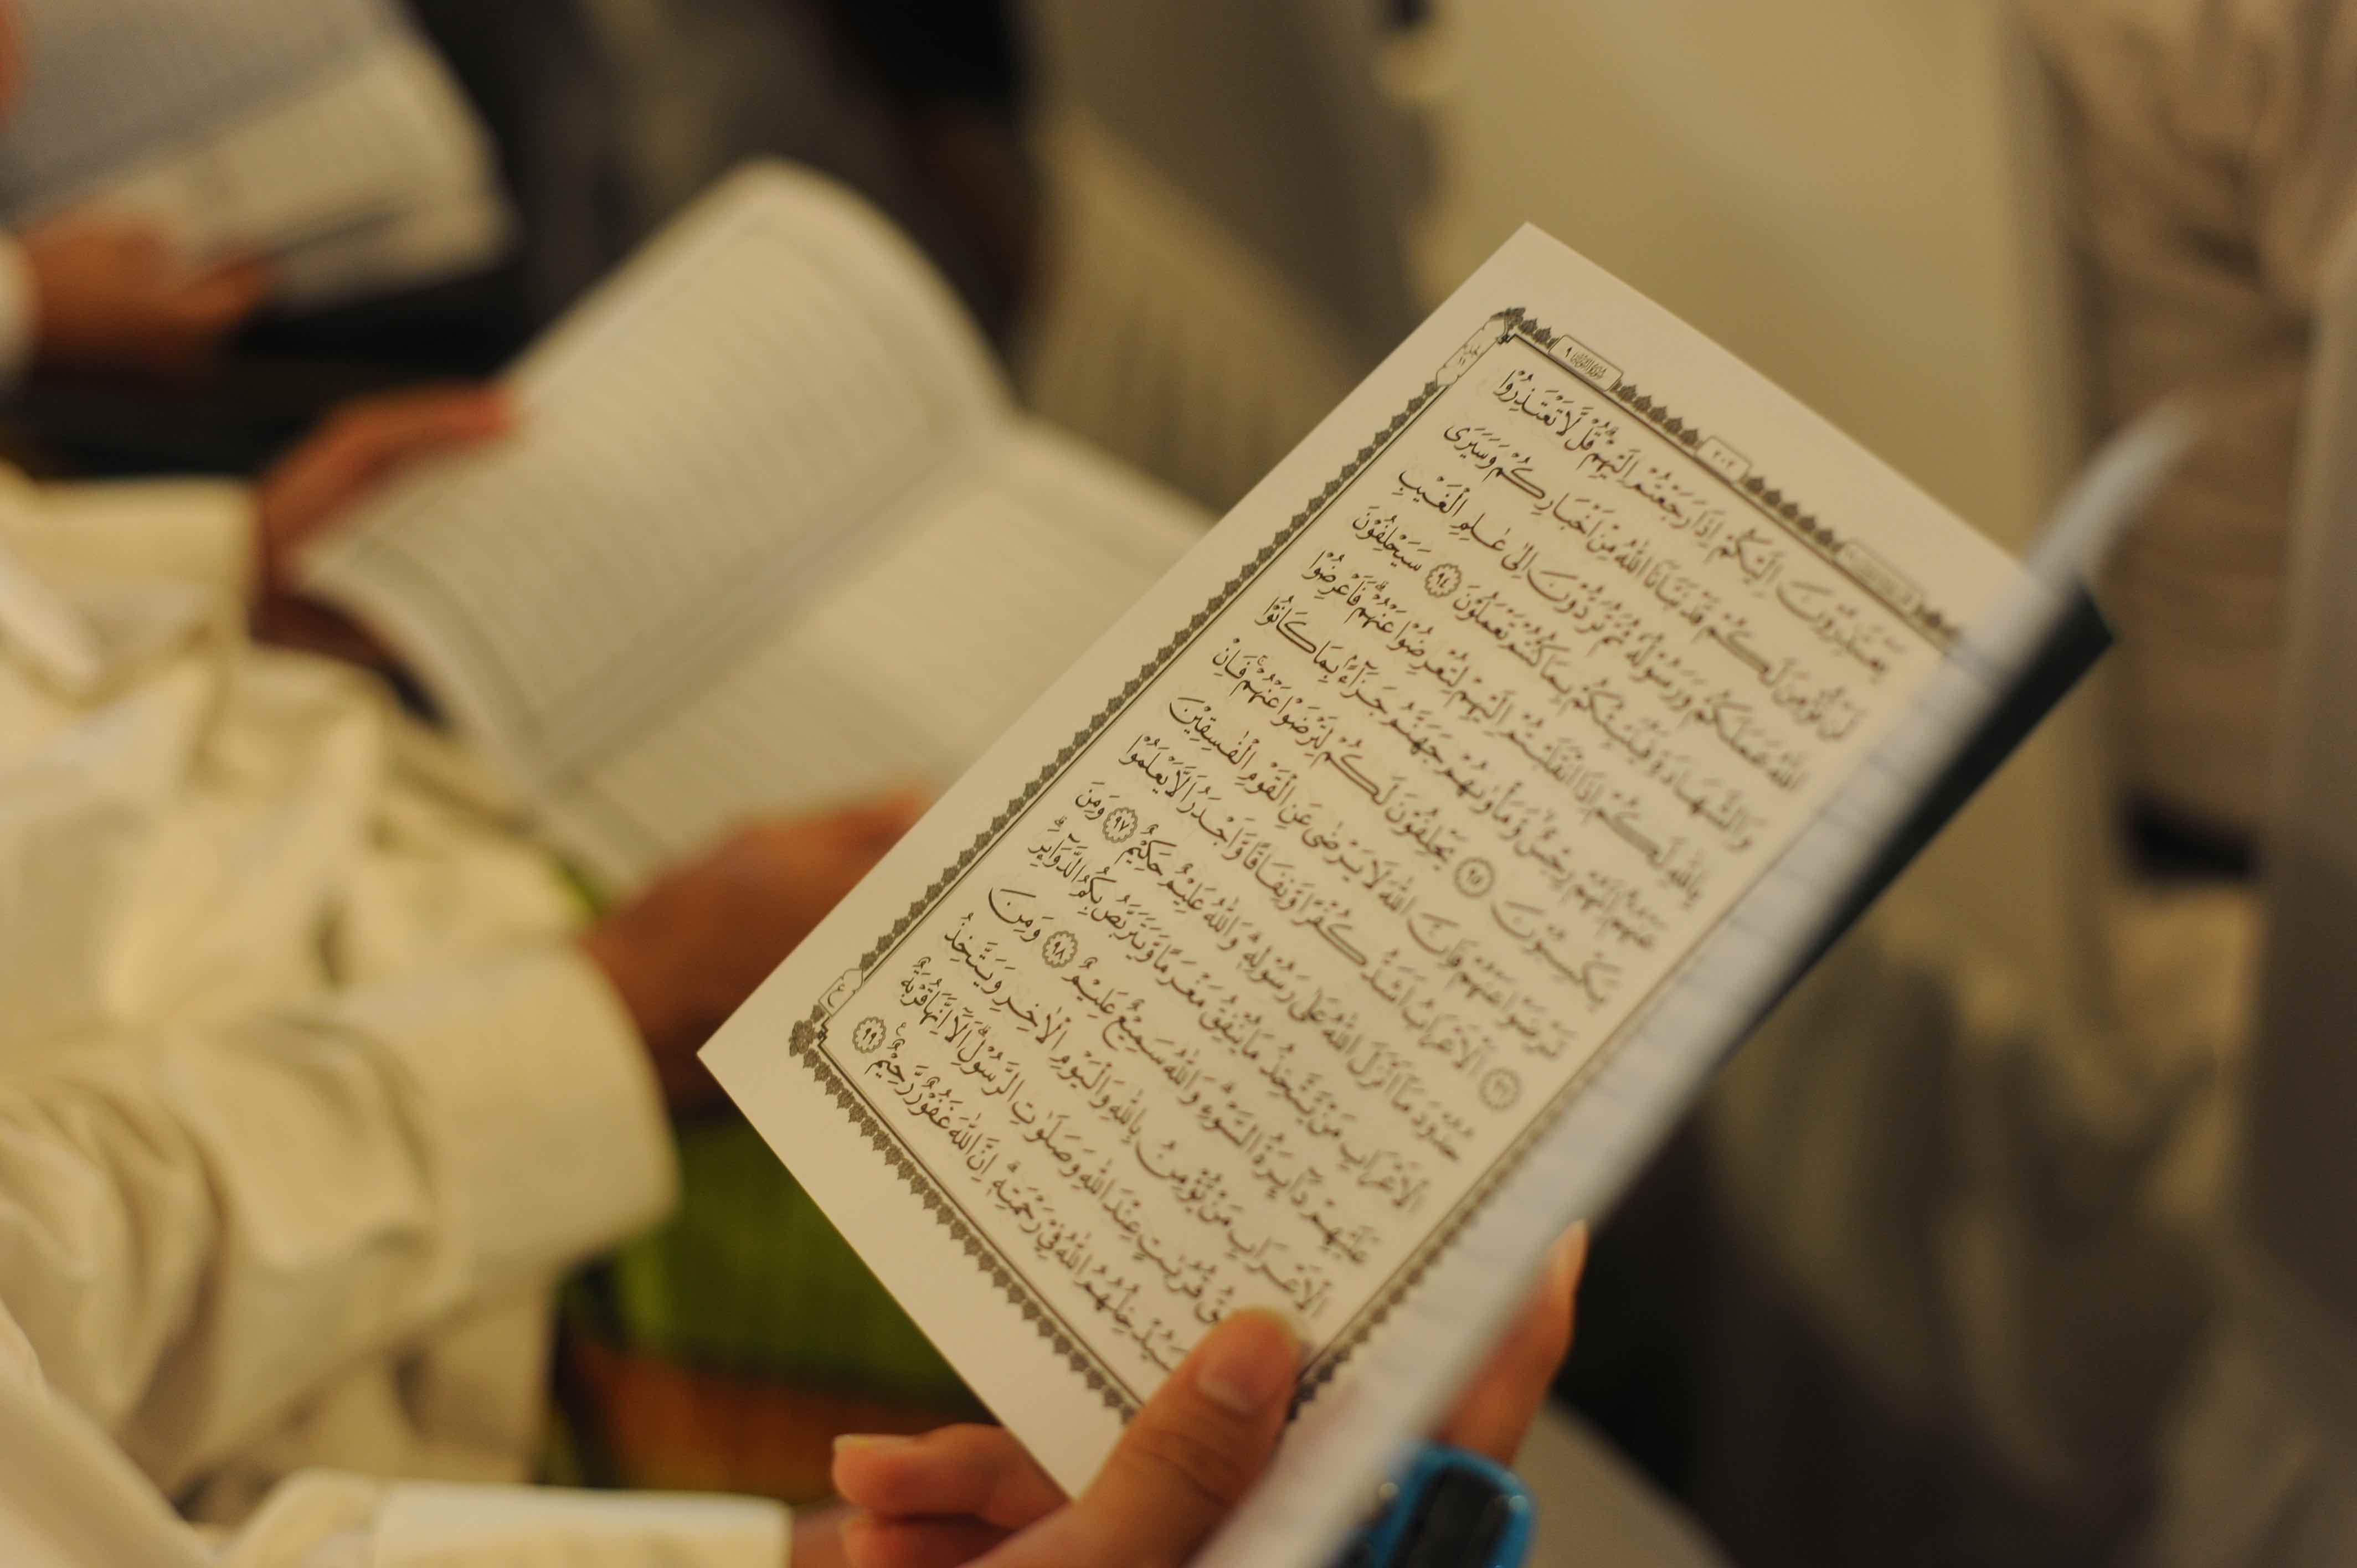 سورة التوبة ٩
٢٠٢
يَعْتَذِرُوْنَ اِلَيْكُمْ اِذَا رَجَعْتُمْ اِلَيْهِمْ ۗ قُلْ لَّا تَعْتَذِرُوْا
لَنْ نُّؤْمِنَ لَكُمْ قَدْ نَبَّاَنَا اللّٰهُ مِنْ اَخْبَارِكُمْ وَسَيَرَى
اللّٰهُ عَمَلَكُمْ وَرَسُوْلُهٗ ثُمَّ تُرَدُّوْنَ اِلٰى عٰلِمِ الْغَيْبِ
وَالشَّهَادَةِ فَيُنَبِّئُكُمْ بِمَا كُنْتُمْ تَعْمَلُوْنَ ٩٤ سَيَحْلِفُوْنَ
بِاللّٰهِ لَكُمْ اِذَا انْقَلَبْتُمْ اِلَيْهِمْ لِتُعْرِضُوْا عَنْهُمْ ۗ فَاَعْرِضُوْا
عَنْهُمْ ۗ اِنَّهُمْ رِجْسٌ ۙ وَّمَأْوٰىهُمْ جَهَنَّمُ جَزَاۤءً ۢ بِمَا كَانُوْا
يَكْسِبُوْنَ ٩٥ يَحْلِفُوْنَ لَكُمْ لِتَرْضَوْا عَنْهُمْ ۚ فَاِنْ
تَرْضَوْا عَنْهُمْ فَاِنَّ اللّٰهَ لَا يَرْضٰى عَنِ الْقَوْمِ الْفٰسِقِيْنَ
٩٦ اَلْاَعْرَابُ اَشَدُّ كُفْرًا وَّنِفَاقًا وَّاَجْدَرُ اَلَّا يَعْلَمُوْا
حُدُوْدَ مَآ اَنْزَلَ اللّٰهُ عَلٰى رَسُوْلِهٖ ۗ وَاللّٰهُ عَلِيْمٌ حَكِيْمٌ ٩٧ وَمِنَ
الْاَعْرَابِ مَنْ يَّتَّخِذُ مَا يُنْفِقُ مَغْرَمًا وَّيَتَرَبَّصُ بِكُمُ الدَّوَاۤىِٕرَ ۗ
عَلَيْهِمْ دَاۤىِٕرَةُ السَّوْءِ ۗ وَاللّٰهُ سَمِيْعٌ عَلِيْمٌ ٩٨ وَمِنَ
الْاَعْرَابِ مَنْ يُّؤْمِنُ بِاللّٰهِ وَالْيَوْمِ الْاٰخِرِ وَيَتَّخِذُ
يُنْفِقُ قُرُبٰتٍ عِنْدَ اللّٰهِ وَصَلَوٰتِ الرَّسُوْلِ ۗ اَلَآ اِنَّهَا قُرْبَةٌ
سَيُدْخِلُهُمُ اللّٰهُ فِيْ رَحْمَتِهٖ ۗ اِنَّ اللّٰهَ غَفُوْرٌ رَّحِيْمٌ ࣖ ٩٩